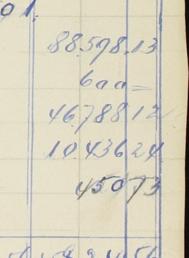 01.
88.598.13
600=
46.788 12
10.436 24
450 73